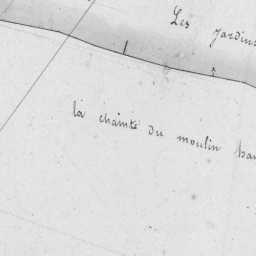 Les jardins
la chainte du moulin ban